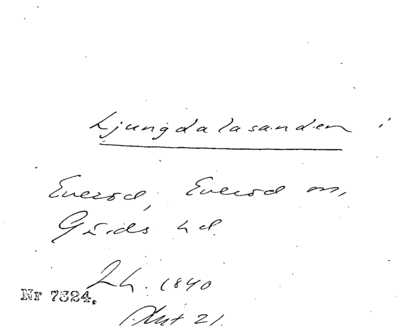 Ljungdalasanden i
Everöd, Everöd sn,
Gärds hd.
Lh. 1840
Nr 7324.
Akt 21.